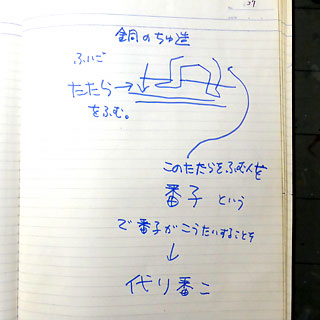 銅のちゅ造
ふいご
たたら→
をふむ。
このたたらをふむ人を
番子 という
で番子がこうたいすることを
↓
代り番こ